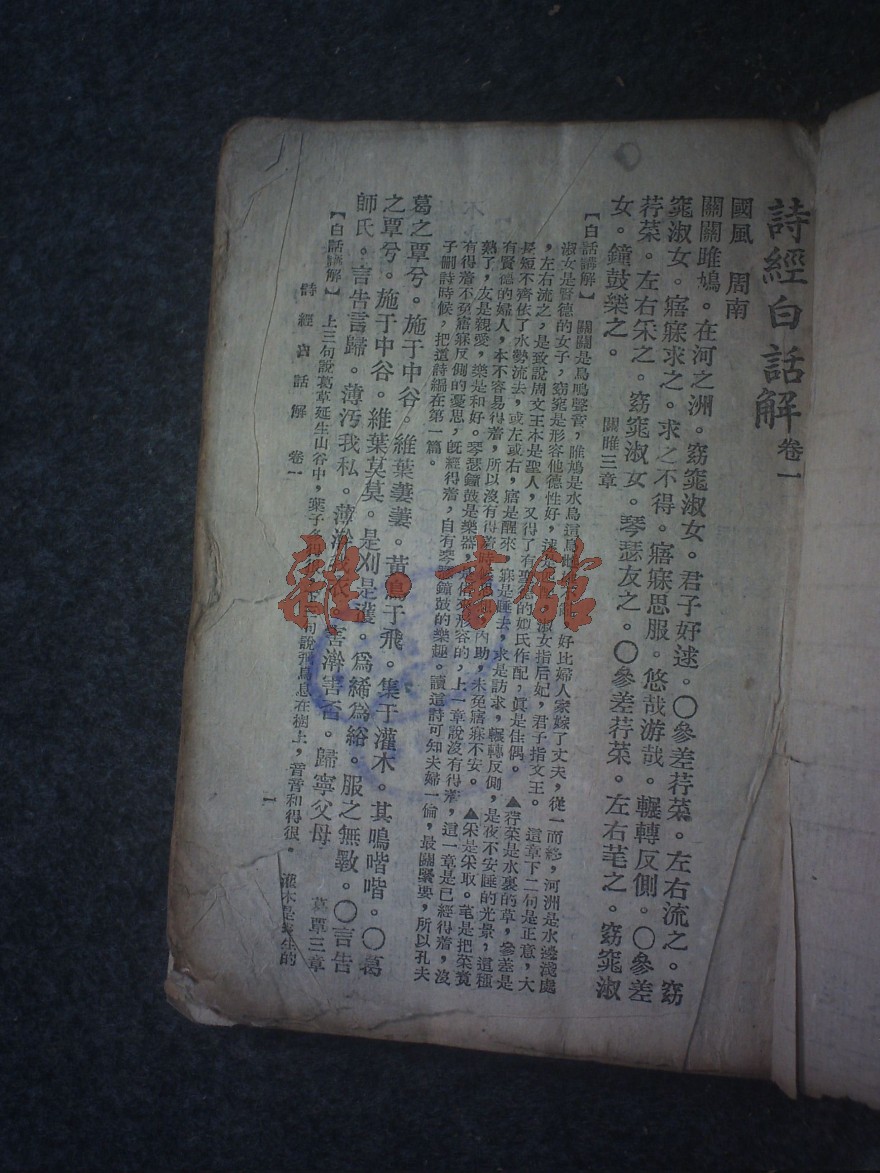 詩經白話解 卷一
國風 周南
關關雎鳩。在河之洲。窈窕淑女。君子好逑。〇參差荇菜。左右流之。窈
窕淑女。寤寐求之。求之不得。寤寐思服。悠哉游哉。輾轉反側。〇參差
荇菜。左右采之。窈窕淑女。琴瑟友之。〇參差荇菜。左右芼之。窈窕淑
女。鐘鼓樂之。 關雎三章
【白話講解】 關關是鳥鳴聲音,雎鳩是水鳥這鳥 好比婦人家嫁了丈夫,從一而終,河洲是水邊淺處
淑女是賢德的女子,窈窕是形容他德性好, 淑女指后妃,君子指文王。 這章下二句是正意,大
,左右流之,是致說周文王本是聖人,又得了有聖 的姒氏作配,眞是佳偶。 ▲荇菜是水裏的草,參差是
長短不齊依了水勢流去,或左或右,寤是醒來,寐是睡去,求是訪求,輾轉反側,是夜不安睡的光景,這種
有賢德的婦人,本不容易得着,所以沒有得着 內助,未免寤寐不安。 ▲采是采取。芼是把菜煑
熟了,友是親愛,樂是和好。琴瑟鐘鼓是樂器, 形容的,上一章說沒有得着,這一章是已經得着,沒
有得着不免寤寐反側的憂思,旣經得着,自有琴瑟鐘鼓的樂趣。讀這詩可知夫婦一倫,最關緊要,所以孔夫
子刪詩時候,把這詩編在第一篇。
葛之覃兮。施于中谷。維葉萋萋。黃鳥于飛。集于灌木。其鳴喈喈。〇葛
之覃兮。施于中谷。維葉莫莫。是刈是濩。爲絺爲綌。服之無斁。〇言告
師氏。言告言歸。薄汚我私。薄澣 衣。害澣害否。歸寧父母 葛覃三章
【白話講解】 上三句說葛草延生山谷中,葉子 句說飛鳥息在樹上,音音和得很。 灌木是叢生的
詩經白話解 卷一 一
雜·書館